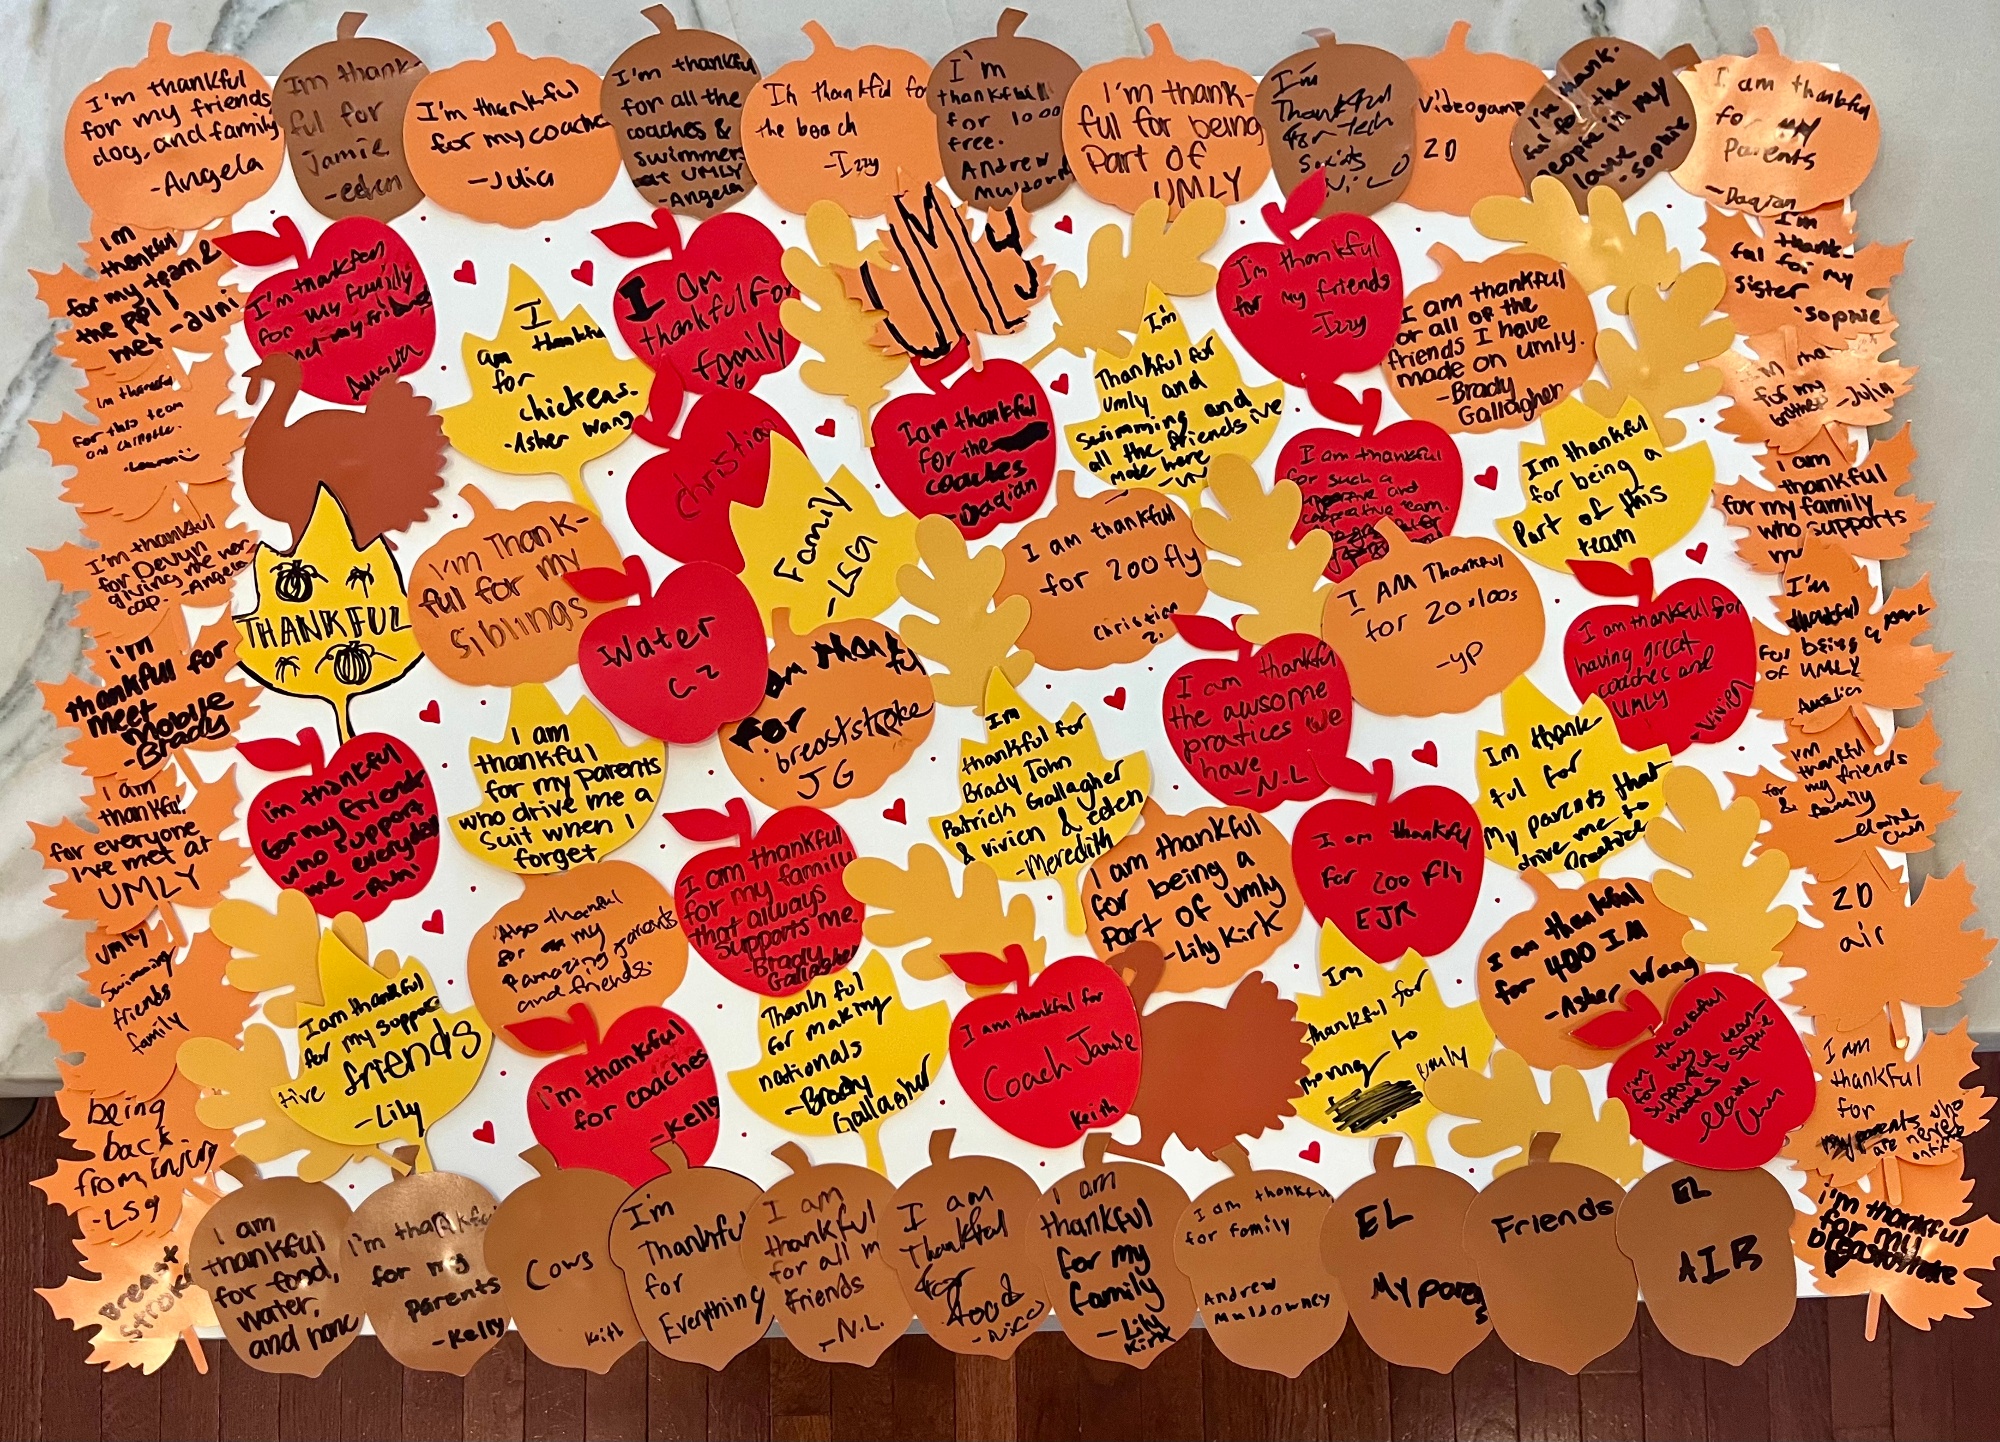 I'm thankful
for my friends
dog, and family
-Angela
Im thank-
ful for
Jamie
-eden
I'm thankful
for my coache
-Julia
I'm thankful
for all the
coaches &
swimmers
at UMLY
-Angela
Im thankful for
the beach
-Izzy
I'm
thankful
for 1000
free.
Andrew
Muldowney
I'm thank-
ful for being
Part of
UMLY
I'm
Thankful
for tech
Suits
Nico
Videogames
ZD
I'm thank-
ful for the
people in my
lane -Sophie
I am thankful
for my
Parents
-Daqian
Im
thankful
for my team &
the ppl I
met -avni
I'm thankful
for my family
and my friends
I
am thankful
for
chickens.
-Asher Wang
I am
thankful for
family
JG
UMLY
I'm
Thankful for
Umly and
Swimming and
all the friends ive
made here
I'm thankful
for my friends
-Izzy
I am thankful
for all of the
friends I have
made on umly.
-Brady
Gallagher
I'm
thank-
ful for my
sister
-sophie
for my
brother -Julia
Im thankful
for this team
and chipotle.
-Lauren
Christian
I am thankful
for the
coaches
-Daqian
I am thankful
for such a
supportive and
cooperative team.
Im thankful
for being a
Part of this
team
I am
thankful
for my family
who supports
me
I'm thankful
for Devyn
giving me her
cap. -Angela
THANKFUL
I'm Thank-
ful for my
Siblings
Family
-LSG
I am thankful
for 200 fly
Christian
Z.
I AM Thankful
for 20x100s
-YP
I am thankful for
having great
coaches and
UMLY
-Vivien
I'm
thankful
for being a part
of UMLY
Amelia
i'm
thankful for
Meet
Mobile
-Brady
Water
CZ
I am thankful
for
breaststroke
JG
I am thankful
the awsome
pratices we
have
-N.L
I'm thankful
for my friends
who support
me everyday
-Avni
I am
thankful
for my parents
who drive me a
Suit when I
forget
Im
thankful for
Brady John
Patrick Gallagher
& vivien & eden
-Meredith
I'm thank
ful for
My parents that
drive me to
Practice
I'm
thankful
for my friends
& family
-elaine
I am
thankful
for everyone
I've met at
UMLY
I am thankful
for my family
that always
supports me.
-Brady
Gallagher
I am thankful
for being a
part of umly
-Lily Kirk
I am thankful
for 200 fly
EJR
ZD
air
Also thankful
for my
amazing parents
and friends.
I am thankful
for 400 IM
-Asher Wang
umly
swimming
friends
family
I am thankful
for my suppor
tive friends
-Lily
I'm thankful
for coaches
-Kelly
Thankful
for making
nationals
-Brady
Gallagher
I am thankful for
Coach Jamie
Keith
Im
thankful for
moving to
Umly
I'm thankful
for my
supportive team-
mates & Sophie
elaine
I am
thankful
for
my parents who
are never
on time
being
back
from injury
-LSG
Breast
stroke
I am
thankful
for food,
water,
and home
I'm thankful
for my
parents
-Kelly
Cows
Keith
I'm
Thankful
for
Everything
I am
thankful
for all my
friends
-N.L.
I am
Thankful
for
food
-Nico
I am
thankful
for my
family
-Lily
Kirk
I am thankful
for family
Andrew
Muldowney
EL
My parents
Friends
EL
AIR
i'm thankful
for my
breaststroke